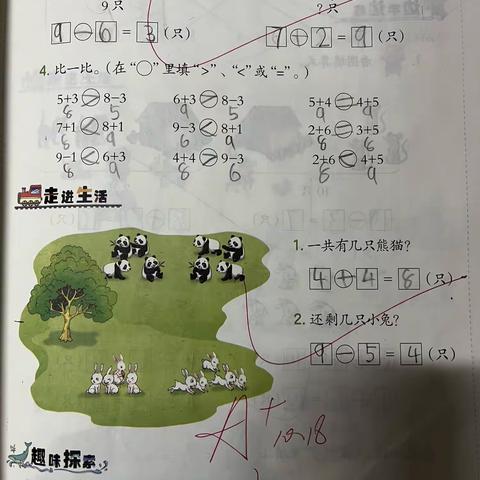 9只 ?只
9-6=3(只) 7+2=9(只)
4.比一比。(在“○”里填“>”、“<”或“=”。)
5+3>8-3 6+3>8-3 5+4=4+5
8 5 9 5 9 9
7+1<8+1 9-3<8+1 2+6=3+5
8 9 6 9 8 8
9-1<6+3 4+4>9-3 2+6<4+5
8 9 8 6 8 9
走进生活
1.一共有几只熊猫?
4+4=8(只)
2.还剩几只小兔?
9-5=4(只)
A+
10.18
趣味探索